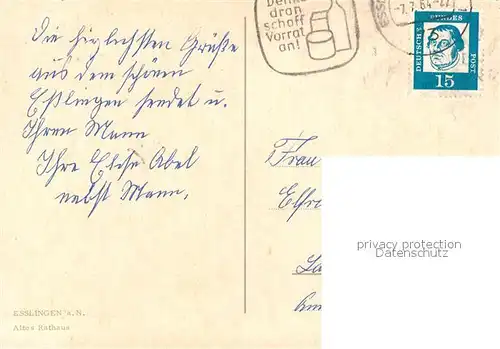 Denke
dran
schaff
Vorrat
an!
-7.7.64-17
DEUTSCHE BUNDESPOST
15
Die herzlichsten Grüße
aus dem schönen
Eßlingen sendet u.
Ihrem Mann
Ihre Elise Abel
nebst Mann.
Frau
privacy protection
Datenschutz
ESSLINGEN a. N.
Altes Rathaus